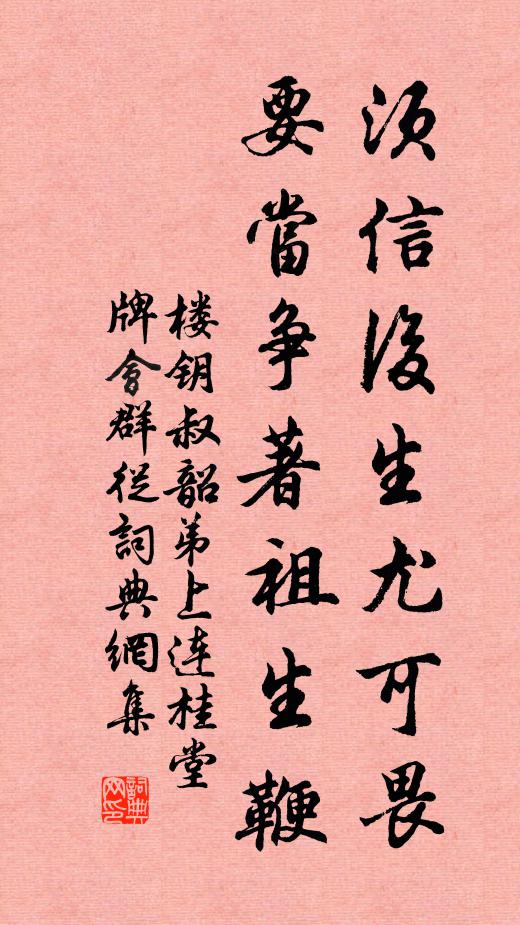 须信後生尤可畏
要當争著祖生鞭
楼钥叔韶弟上连桂堂
牌會群從詞典網集
詞典
网印